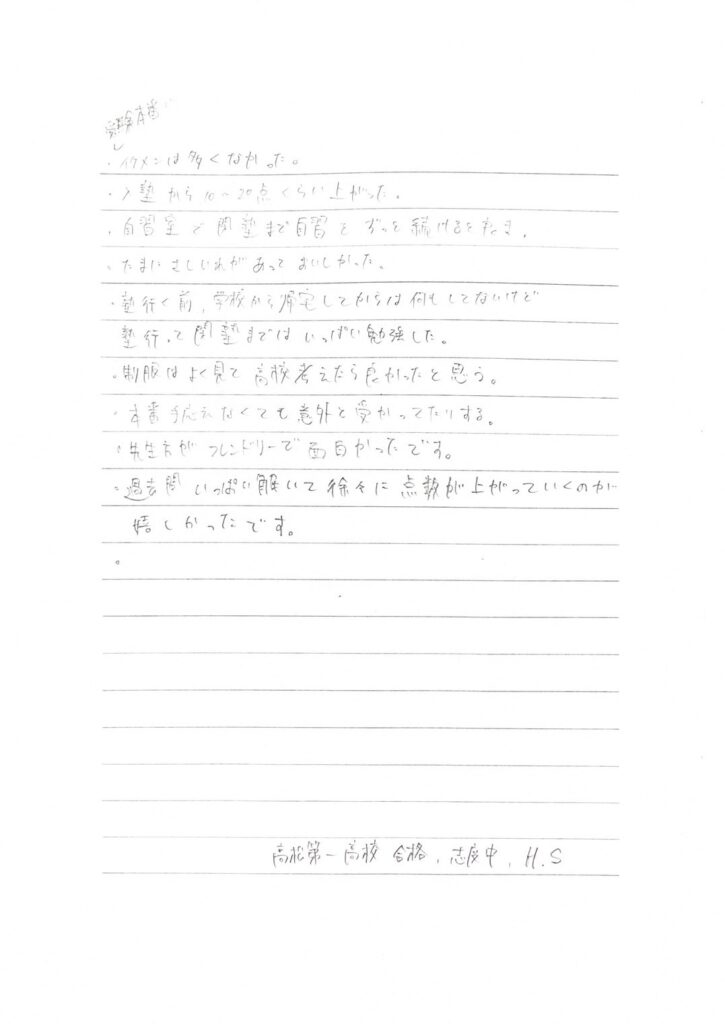 受験本番
・イケメンは多くなかった。
・入塾から10〜20点くらい上がった。
・自習室で閉塾まで自習をずっと続けるとよき。
・たまにさしいれがあっておいしかった。
・塾行く前、学校から帰宅してからは何もしてないけど
塾行って閉塾まではいっぱい勉強した。
・制服はよく見て高校考えたら良かったと思う。
・本番手応えなくても意外と受かってたりする。
・先生方がフレンドリーで面白かったです。
・過去問いっぱい解いて徐々に点数が上がっていくのが
嬉しかったです。
。
高松第一高校 合格、志度中、H.S